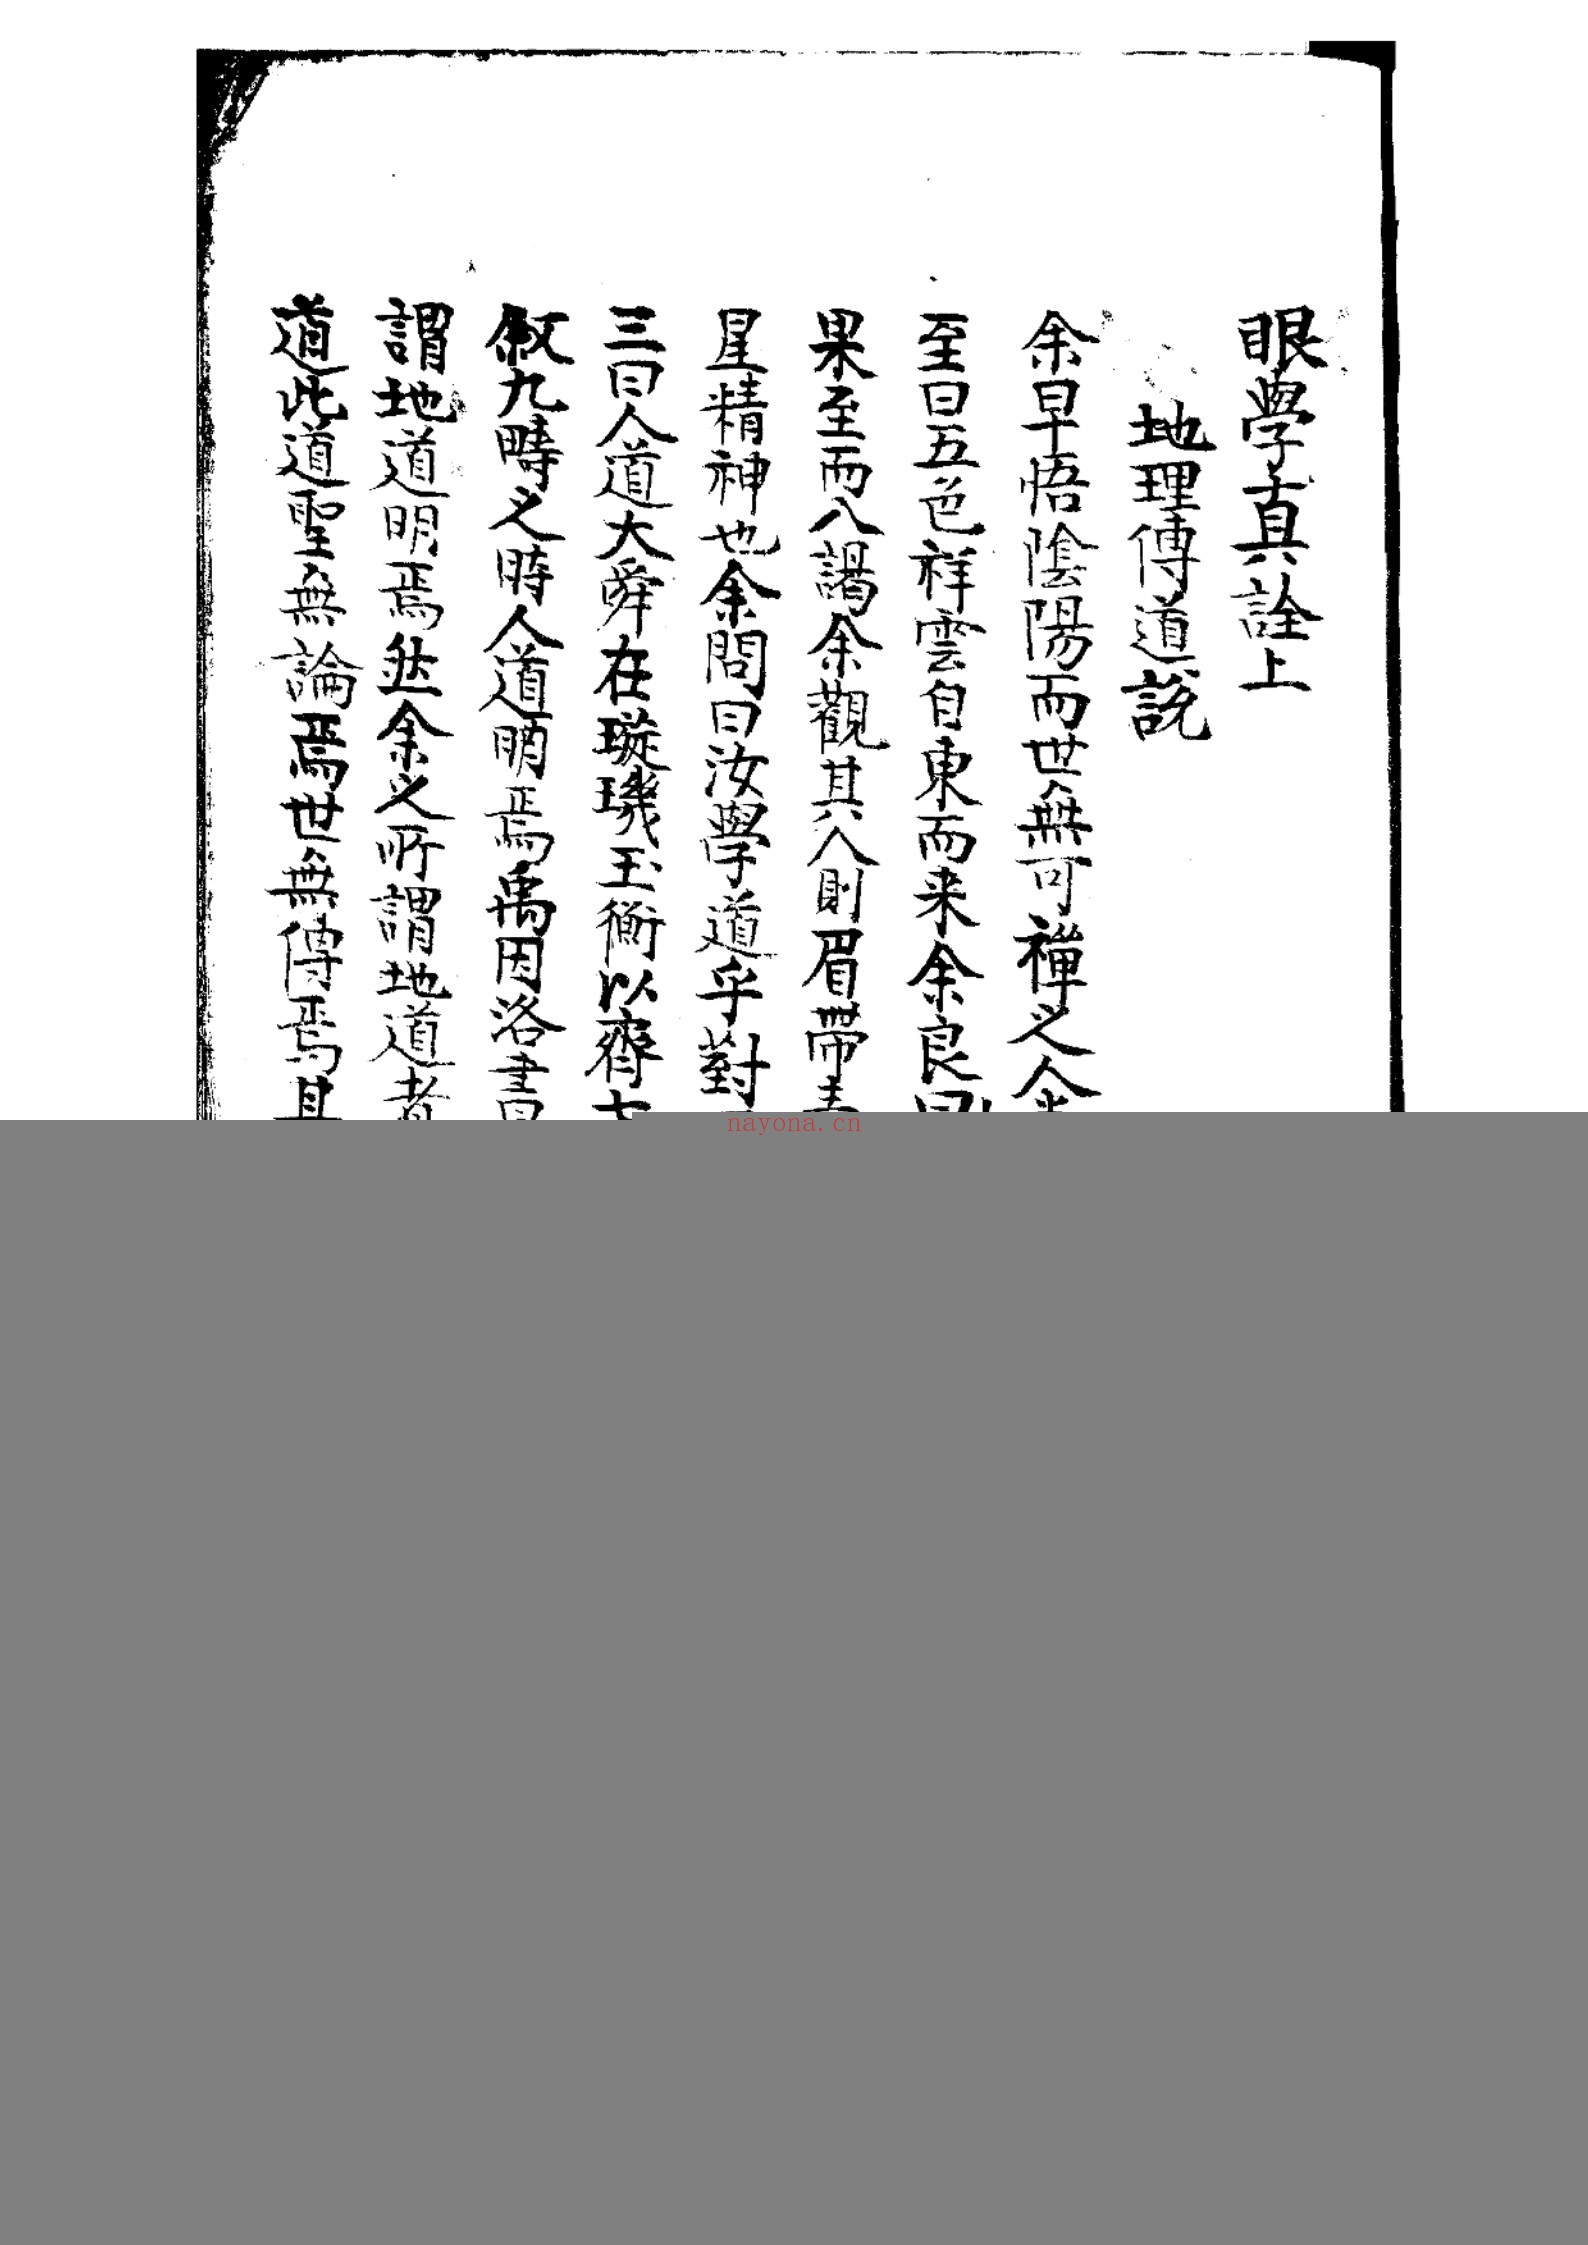 眼學真詮上
地理傳道說
余早悟陰陽而世無可禪之人
至曰五色祥雲自東而来余良
果至而入謁余觀其人則眉帶
星精神也余問曰汝學道乎對
三曰人道大舜在璇璣玉衡以齊七
叙九疇之時人道明焉禹因洛書
謂地道明焉然余之所謂地道者
道此道聖無論焉世無傳焉其
nayona.cn